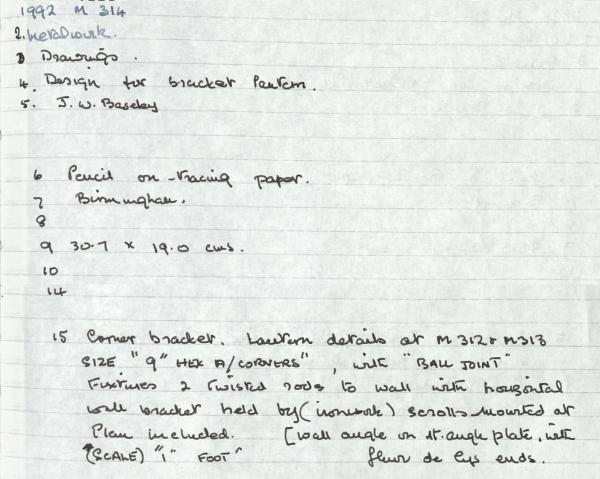 1992 M 314
2. Metalwork.
3 Drawings.
4. Design for bracket lantern.
5. J. W. Baseley
6 Pencil on tracing paper.
7 Birmingham.
8
9 30.7 x 19.0 cms.
10
14
15 Corner bracket. Lantern details at M 312 & M 313
SIZE "9" HEX A/CORNERS", with "BALL JOINT"
Fixtures 2 twisted rods to wall with horizontal
wall bracket held by (ironwork) scrolls mounted at
Plan included. [wall angle on rt. angle plate, with
(SCALE) "1" FOOT" fleur de lys ends.